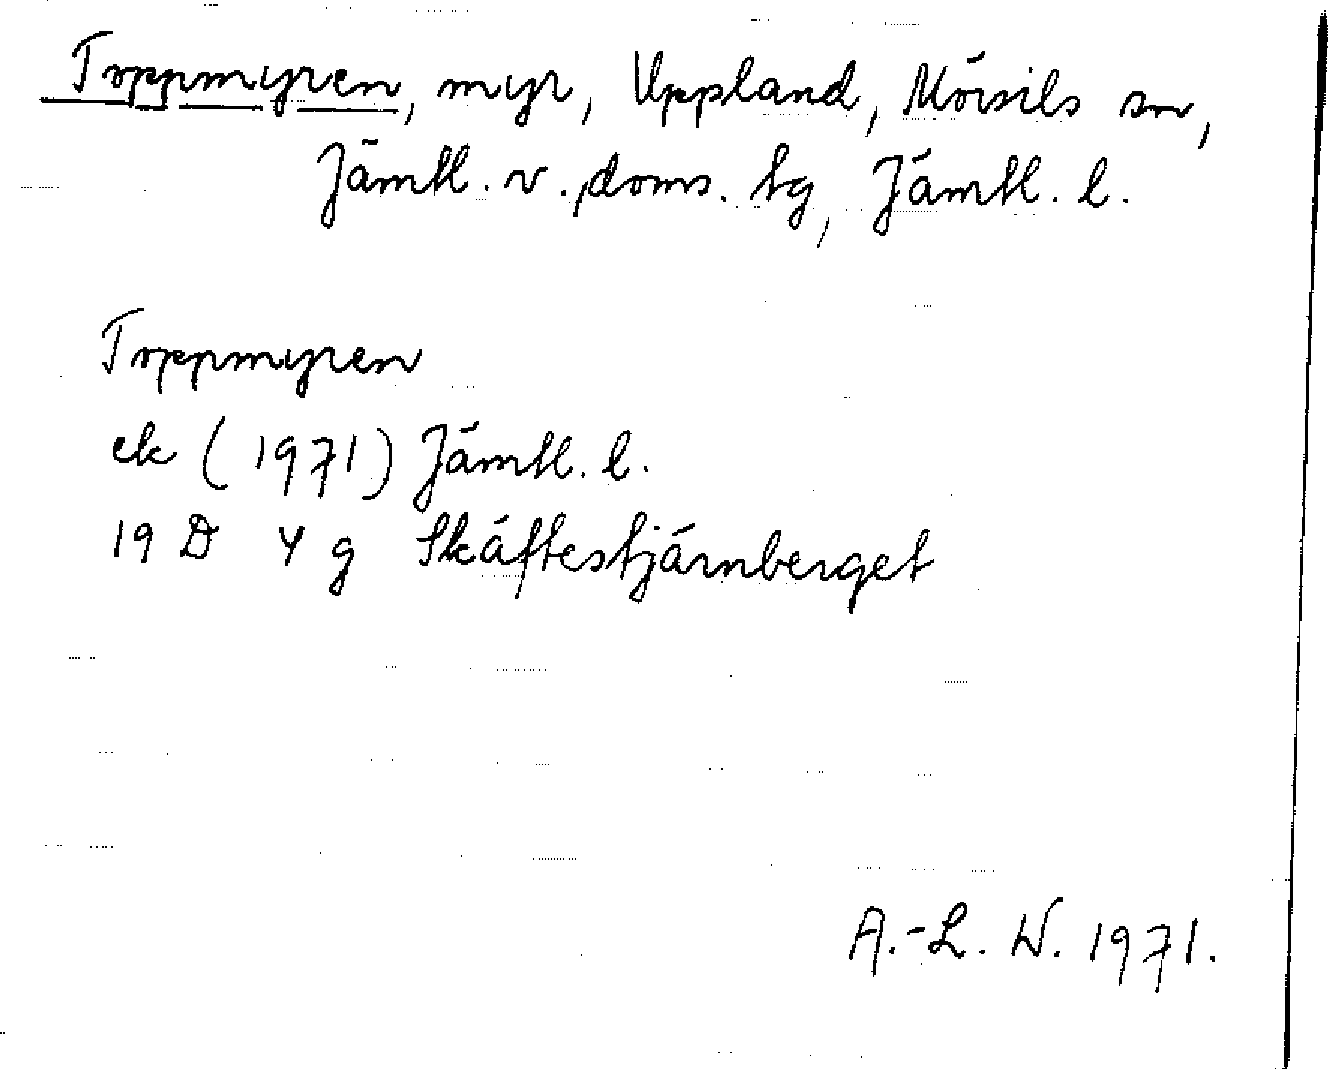 Toppmyren, myr, Uppland, Mörsils sn,
Jämtl. v. doms. tg, Jämtl. l.
Toppmyren
ek (1971) Jämtl. l.
19 D 4 g Skäftestjärnberget
A.-L. W. 1971.